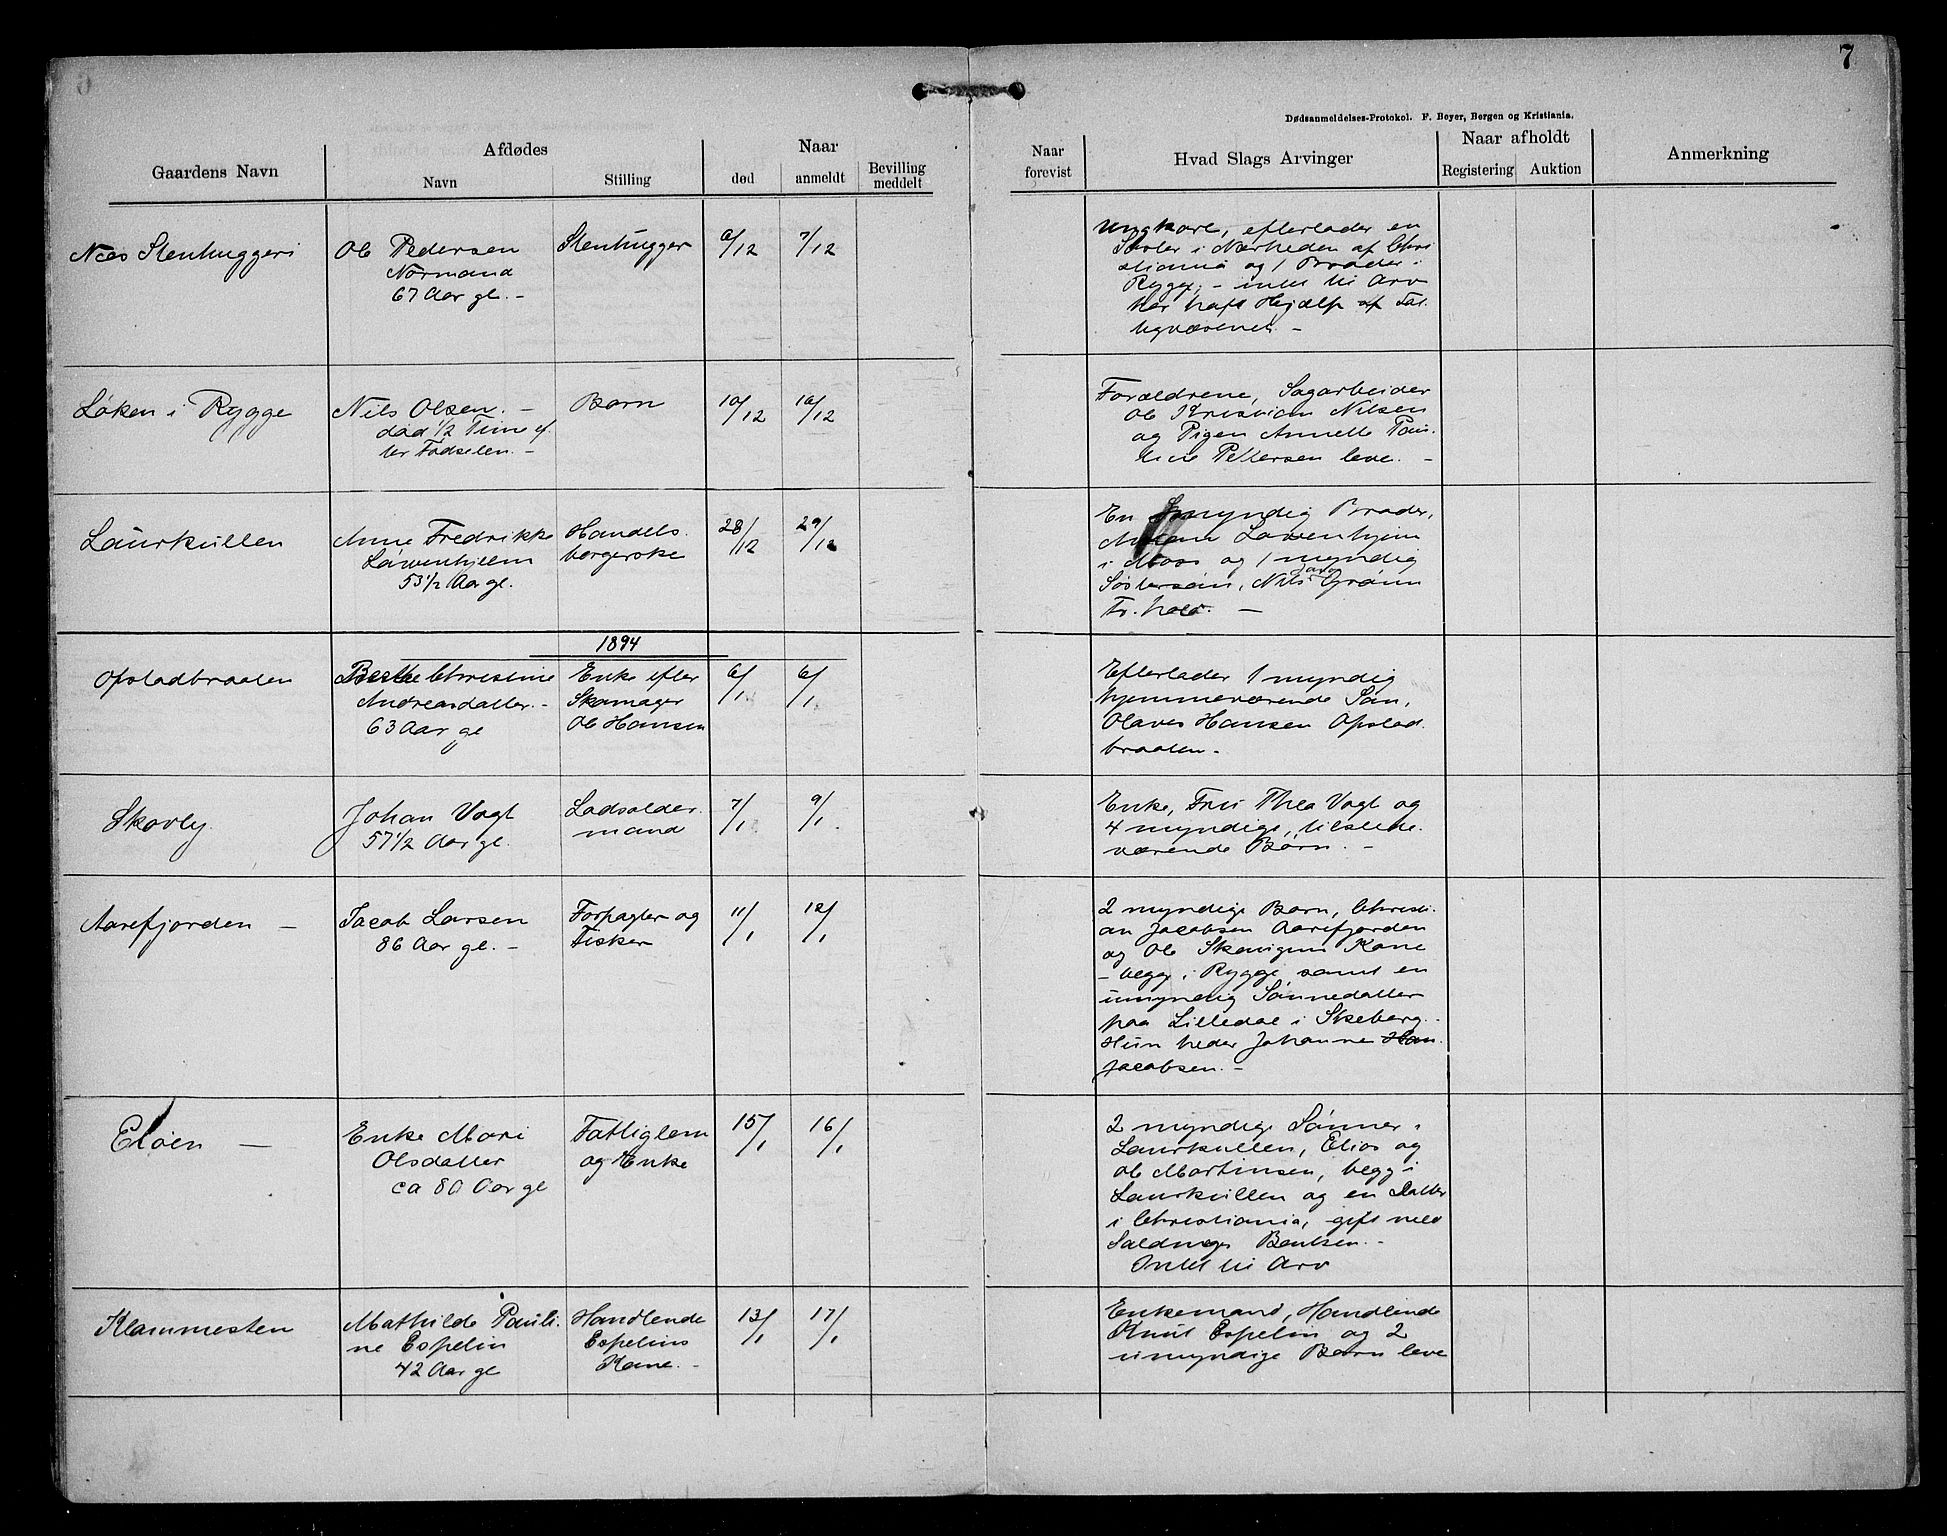 7
Dødsanmeldelses-Protokol. F. Beyer, Bergen og Kristiania.
Gaardens Navn
Afdødes
Navn
Stilling
Naar
død
anmeldt
Bevilling
meddelt
Naar
forevist
Hvad Slags Arvinger
Naar afholdt
Registering
Auktion
Anmerkning
Næs Stenhuggeri
Ole Pedersen
Normand
67 Aar gl. -
Stenhugger
6/12
7/12
Ungkarl, efterlader en
i Nærheden af Chri
stiania og 1 Broder i
Rygge, - intet til Arv
har havt Hjælp af Fat
tigvæsenet. -
Løken i Rygge
Nils Olsen. -
død 1/2 Time ef
ter Fødselen. -
Barn
10/12
10/12
Forældrene, Sagarbeider
Ole Kristian Nilsen
og Pigen Annette Pau-
line Pettersen leve. -
Laurkullen
Anne Fredrikke
Løwenhjelm
53 1/2 Aar gl.
Handels
borgerske
28/12
29/12
En myndig Broder,
Løvenhjem
i Moss og 1 myndig
Søstersøn, Nils Grønn
Fr.hald. -
1894
Opstadbraaten
Berthe Christine
Andreasdatter. -
63 Aar gl
Enke efter
Skomager
Ole Hansen
6/1
6/1
Efterlader 1 myndig
hjemmeværende Søn,
Olaves Hansen Opstad
braaten. -
Skovly
Johan Vogt
57 1/2 Aar gl.
Lodsolder
mand
7/1
9/1
Enke, Fru Thea Vogt og
4 myndige, tilstede
værende Børn. -
Aarefjorden -
Jacob Larsen
86 Aar gl. -
Forpagter og
Fisker
11/1
12/1
2 myndige Børn, Christi-
an Jacobsen Aarefjorden
og Ole Skavigens Kone
- begge i Rygge, samt en
umyndig Sønnedatter
paa Lilledal i Skeberg.
Hun heder Johanne Han
Jacobsen. -
Eløen -
Enke Mari
Olsdatter
ca 80 Aar gl
Fattiglem
og Enke
15/1
16/1
2 myndige Sønner i
Laurkullen, Elias og
Ole Martinsen, begge i
Laurkullen og en Datter
i Christiania, gift med
Bentsen. -
Intet til Arv
Klommesten
Mathilde Pauli-
ne Espelin
42 Aar gl
Handlende
Espelins
Kone. -
13/1
17/1
Enkemand, Handlende
Knut Espelin og 2
umyndige Børn leve